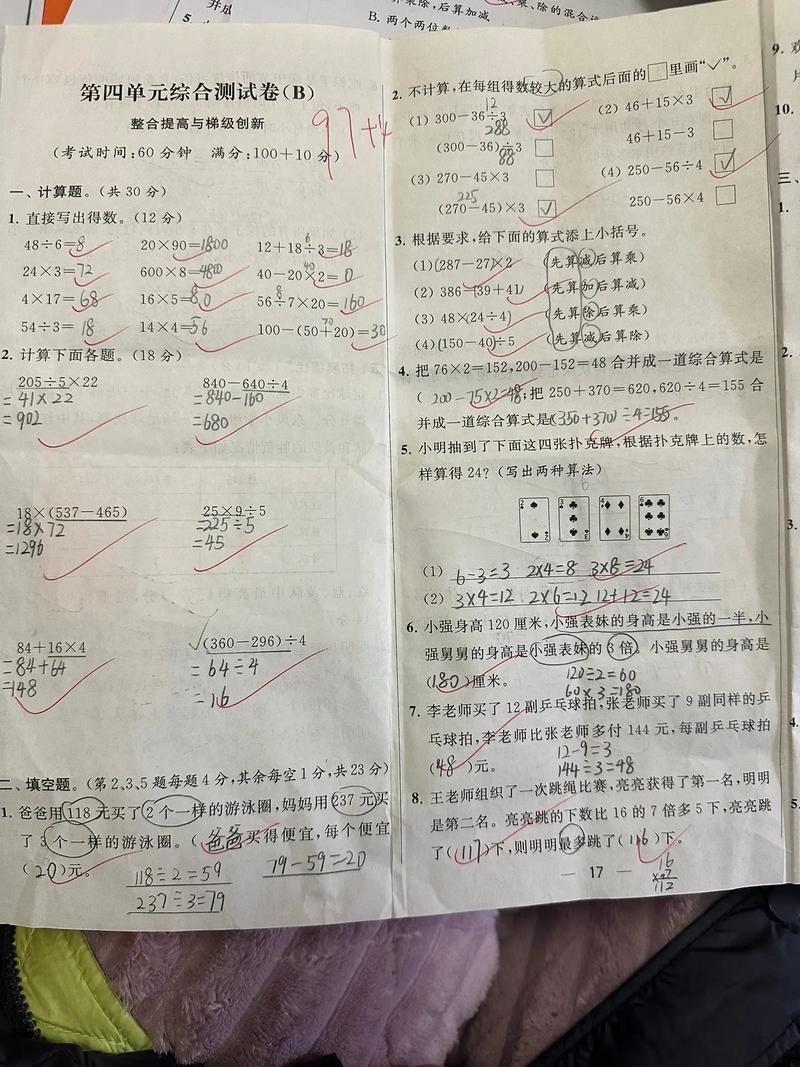 并成
乘除,后算加减
乘、除的混合运
B. 两个两位
第四单元综合测试卷(B)
整合提高与梯级创新
97+4
(考试时间:60分钟 满分:100+10分)
一、计算题。(共30分)
1. 直接写出得数。(12分)
48÷6=8 20×90=1800 12+18÷3=18
6
24×3=72 600×8=4800 40-20×2=0
40
4×17=68 16×5=80 56÷7×20=160
8
54÷3=18 14×4=56 100-(50+20)=30
70
2. 计算下面各题。(18分)
205÷5×22 840-640÷4
=41×22 =840-160
=902 =680
18×(537-465) 25×9÷5
=18×72 =225÷5
=1296 =45
84+16×4 (360-296)÷4
=84+64 =64÷4
=148 =16
二、填空题。(第2,3,5题每题4分,其余每空1分,共23分)
1. 爸爸用118元买了2个一样的游泳圈,妈妈用237元买
了3个一样的游泳圈。(爸爸)买得便宜,每个便宜
(20)元。
118÷2=59 79-59=20
237÷3=79
2. 不计算,在每组得数较大的算式后面的□里画“✓”。
12
(1) 300-36÷3 ✓ (2) 46+15×3 ✓
288
(300-36)÷3 □ 46+15-3 □
88
(3) 270-45×3 □ (4) 250-56÷4 ✓
225
(270-45)×3 ✓ 250-56×4 □
3. 根据要求,给下面的算式添上小括号。
(1) (287-27)×2 (先算减后算乘)
(2) 386-(39+41) (先算加后算减)
(3) 48×(24÷4) (先算除后算乘)
(4) (150-40)÷5 (先算减后算除)
4. 把76×2=152,200-152=48合并成一道综合算式是
(200-75×2=48);把250+370=620,620÷4=155合
并成一道综合算式是(350+370)÷4=155。
5. 小明抽到了下面这四张扑克牌,根据扑克牌上的数,怎
样算得24?(写出两种算法)
6
2 3 4 6
(1) 6-3=3 2×4=8 3×8=24
(2) 3×4=12 2×6=12 12+12=24
6. 小强身高120厘米,小强表妹的身高是小强的一半,小
强舅舅的身高是小强表妹的3倍。小强舅舅的身高是
(180)厘米。 120÷2=60
60×3=180
7. 李老师买了12副乒乓球拍,张老师买了9副同样的乒
乓球拍,李老师比张老师多付144元,每副乒乓球拍
(48)元。 12-9=3
144÷3=48
8. 王老师组织了一次跳绳比赛,亮亮获得了第一名,明明
是第二名。亮亮跳的下数比16的7倍多5下,亮亮跳
了(117)下,则明明最多跳了(116)下。
— 17 —
16
×7
112
9. 欢
片
10.
三、
1.
2.
3.
4.
5.